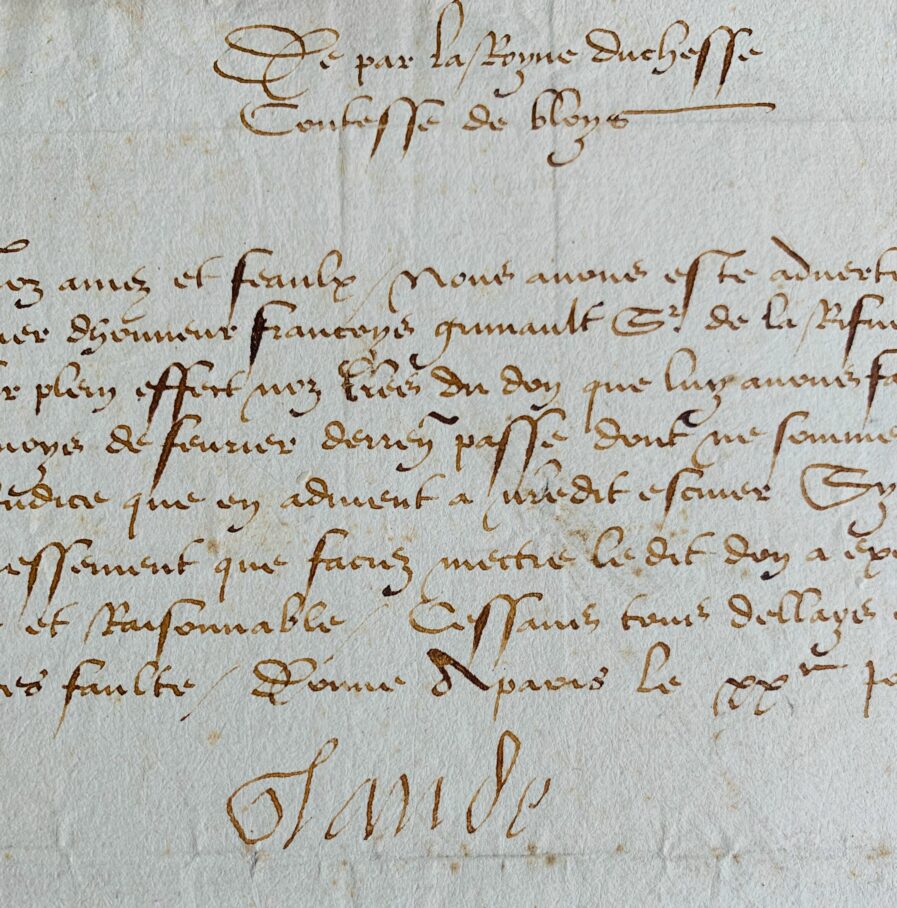 De par la Royne duchesse
Contesse de bloys
noz amez et feaulx / Nous auons este aduerte
dhonneur francoys Sr. de la
plein effect noz lres du don que luy auons fa
moys de feurier derren passe dont ne somme
que en aduient a nredit escuier Sy
essement que faciez mectre le dit don a exe
et Raisonnable / Cessans tous dellays
faulte / Donne A paris le xxe jo
Claude